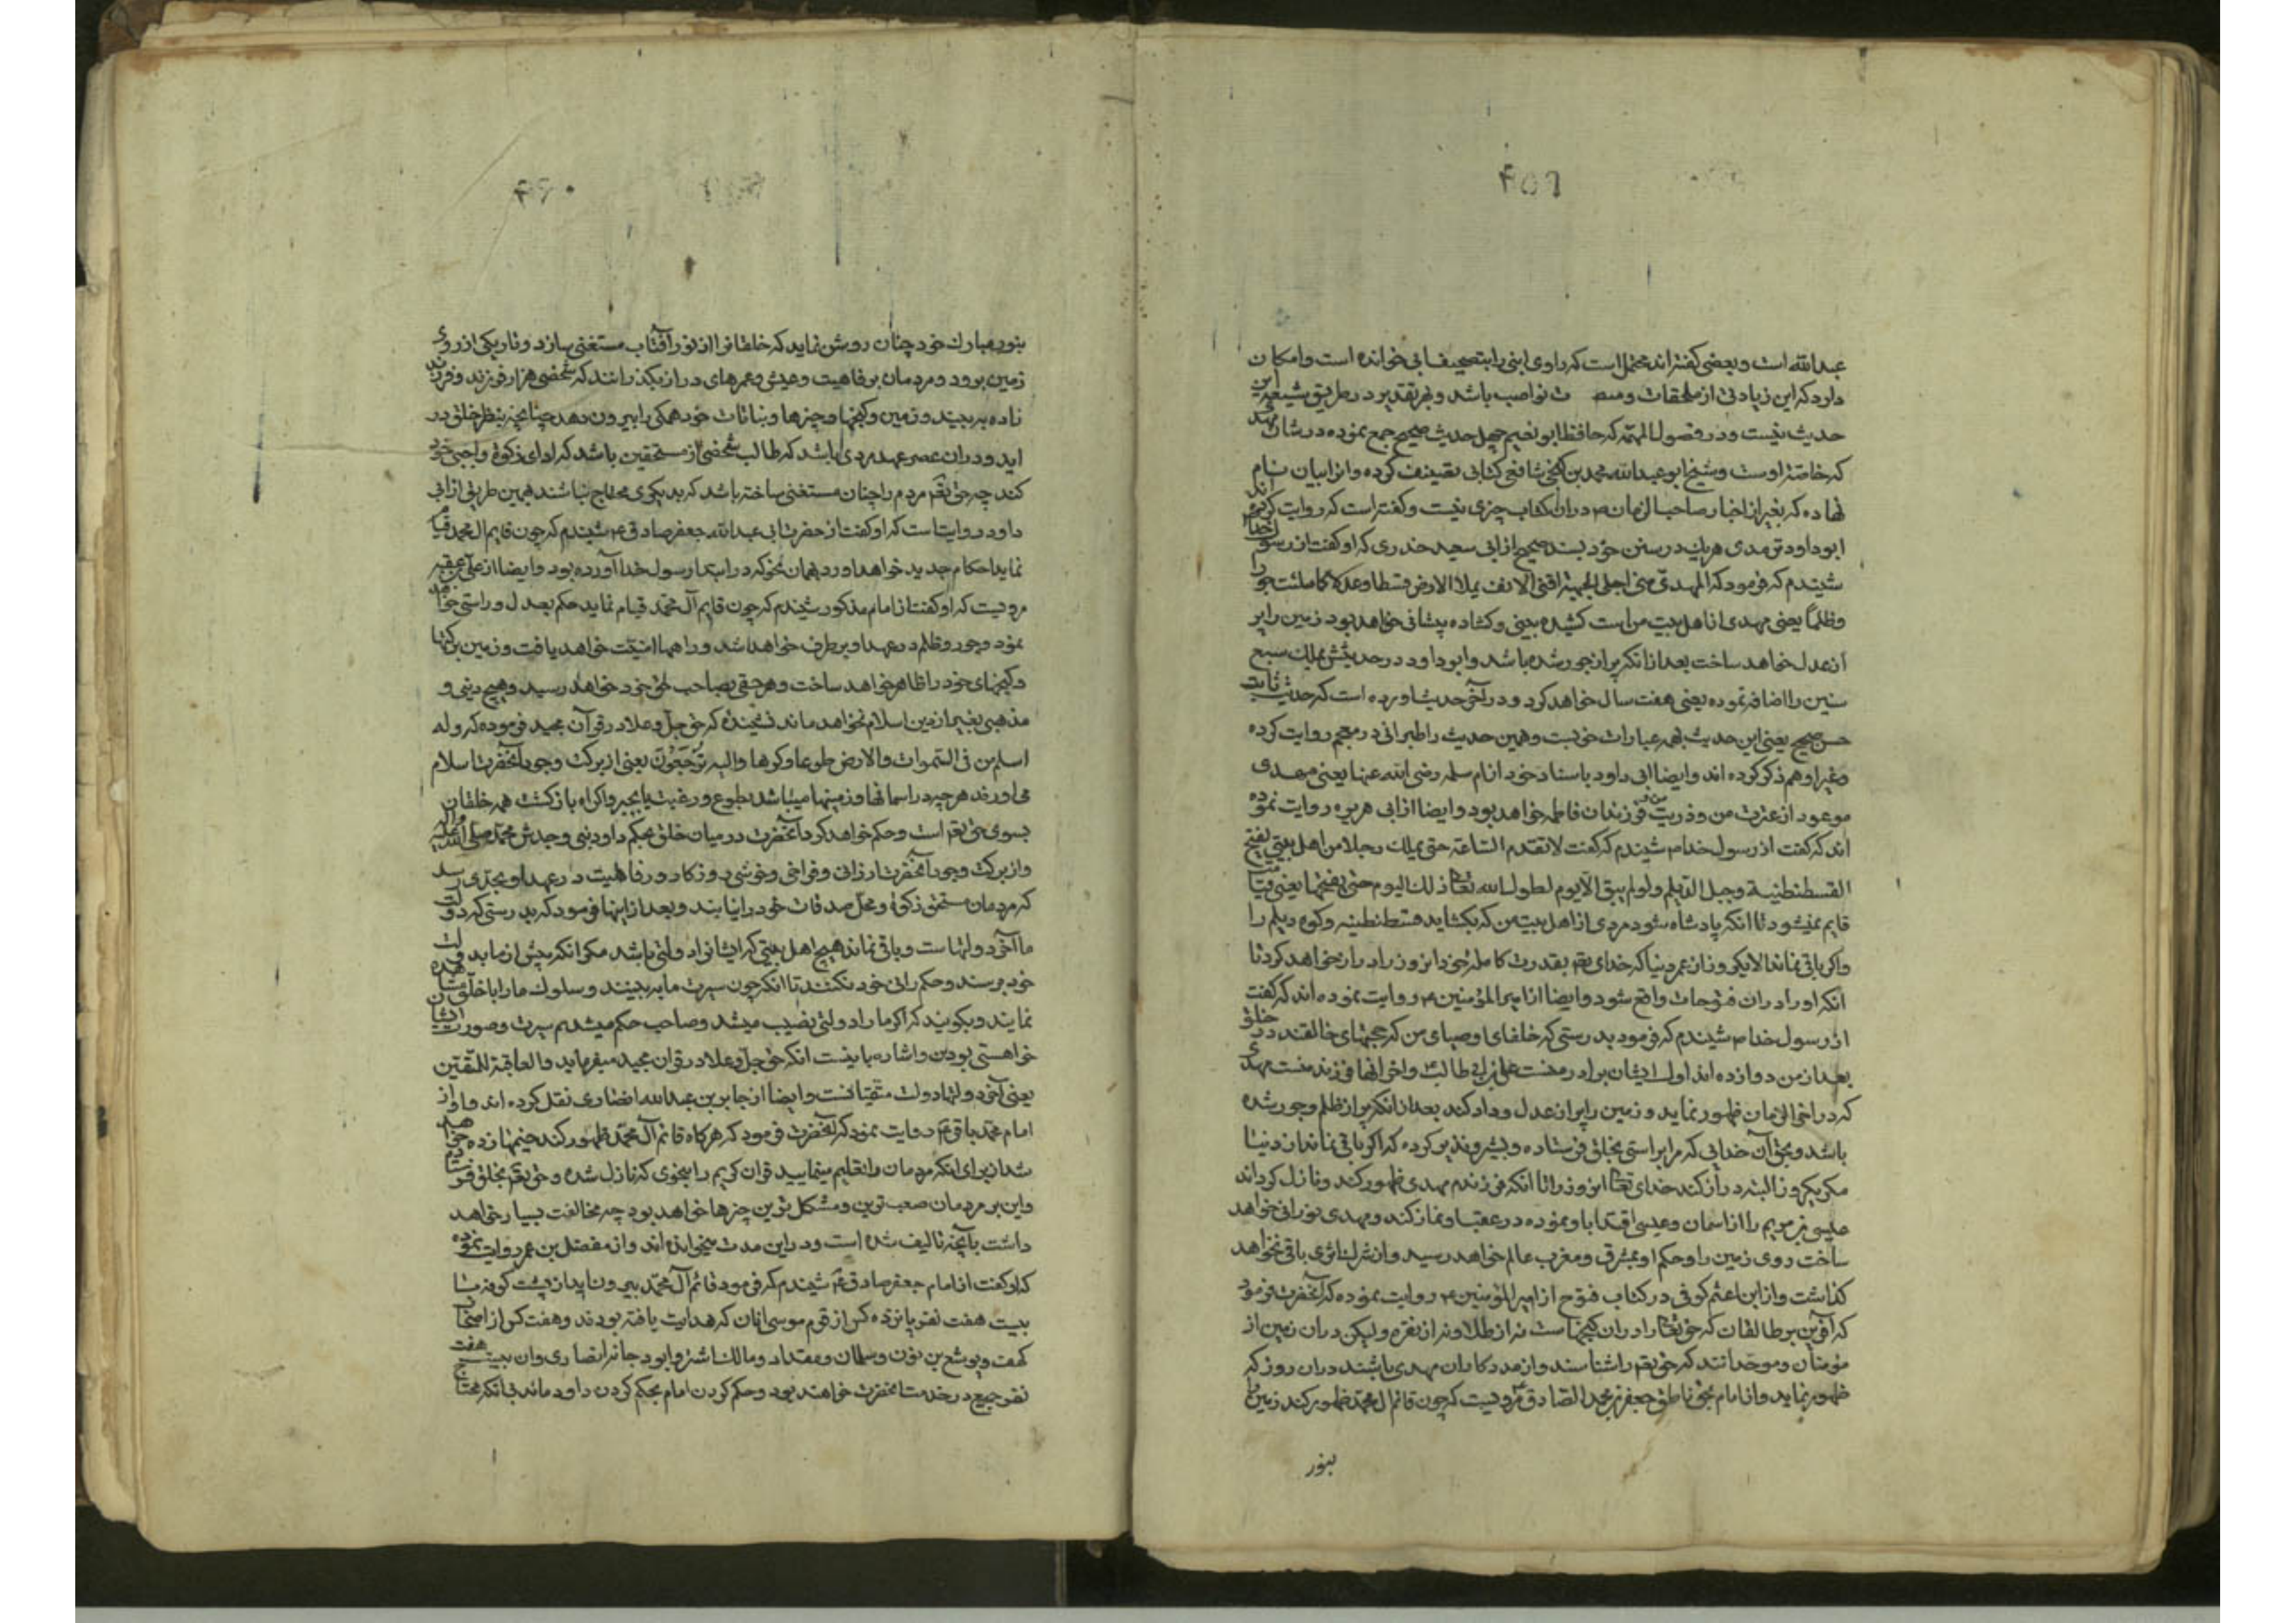 ۴۵۹
عبدالله است وبعضی کفته‌اند محتمل است که راوی ابنی را بتصحیف ابی خوانده است وامکان
دارد که این زیادتی از ملحقات نواصب باشد و بهر تقدیر در طریق شیعه این
حدیث نیست ودر فصول المهمه که حافظ ابو نعیم چهل حدیث صحیح جمع نموده در شان مهدی
که خاصهٔ اوست وشیخ ابو عبدالله محمد بن کنجی شافعی کتابی تصنیف کرده وانرا بیان نام
نهاده که بغیر از اخبار صاحب الزمان ۴ دران کتاب چیزی نیست وکفته است که روایت کرده اند
ابوداود ترمدی هریك در سنن خود بسند صحیح از ابی سعید خدری که او کفت از رسول خدا
شنیدم که فرمود که المهدی منی اجلی الجبهه اقنی الانف یملا الارض قسطا وعدلا کما ملئت جورا
وظلما یعنی مهدی از اهل بیت من است کشیده بینی وکشاده پیشانی خواهد بود زمین را پر
از عدل خواهد ساخت بعد از انکه پر از جور شده باشد وابو داود در حدیثش یملك سبع
سنین را اضافه نموده یعنی هفت سال خواهد کرد ودر آخر حدیث اورده است که حدیث ثابت
حسن صحیح یعنی این حدیث بهمه عبارات خوبست وهمین حدیث را طبرانی در معجم روایت کرده
وغیر او هم ذکر کرده اند وایضا ابی داود باسناد خود از ام سلمه رضی الله عنها یعنی مهدی
موعود از عترت من وذریت من و فرزندان فاطمه خواهد بود وایضا از ابی هریره روایت نموده
اند که کفت از رسول خدا ۴ شنیدم که کفت لا تقدم الساعة حتی یملك رجلا من اهل بیتی یفتح
القسطنطنیة وجبل الدیلم ولو لم یبق الا یوم لطول الله تعا ذلك الیوم حتی یفتحها یعنی قیامت
قایم نمیشود تا انکه پادشاه شود مردی از اهل بیت من که بکشاید قسطنطنیه وکوه دیلم را
واکر باقی نماند الا یکروز از عمر دنیا که خدای تعم بقدرت کامله خود انروز را دراز خواهد کرد تا
انکه او را دران فتوحات واقع شود وایضا از امیر المؤمنین ۴ روایت نموده اند که کفت
از رسول خدا ۴ شنیدم که فرمود بدرستی که خلفای اوصیای من که حجتهای خالقند در خلق
بعد از من دوازده اند اول ایشان برادر منست علی بن ابی طالب ۴ واخر انها فرزند منست مهدی
که در اخر الزمان ظهور نماید وزمین را پر از عدل وداد کند بعد از انکه پر از ظلم وجور شده
باشد وبحق آن خدایی که مرا براستی بخلق فرستاده وبشیر ونذیر کرده که اکر باقی نماند از دنیا
مکر یکروز البته دراز کند خدای تعا انروز را تا انکه فرزندم مهدی ظهور کند ونازل کرداند
عیسی بن مریم را از اسمان وعیسی اقتدا باو نموده در عقب او نماز کند ومهدی نورانی خواهد
ساخت روی زمین را وحکم او بمشرق ومغرب عالم خواهد رسید واز شرك اثری باقی نخواهد
کذاشت واز ابن اعثم کوفی در کتاب فتوح از امیر المؤمنین ۴ روایت نموده که آنحضرت فرمود
که آفرین بر طالقان که حق تعا را دران کنجهاست نه از طلا ونه از نقره ولیکن دران زمین از
مؤمنان وموحدانند که حق تعم را شناسند واز مددکاران مهدی باشند دران روز که
ظهور نماید واز امام بحق ناطق جعفر بن محمد الصادق ۴ مرویست که چون قائم ال محمد ظهور کند زمین را
بنور
۴۶۰
بنور مبارك خود چنان روشن نماید که خلقانرا از نور آفتاب مستغنی سازد وتاریکی از روی
زمین برود ومردمان برفاهیت وعیش وعمرهای دراز بکذرانند که شخصی هزار فرزند وفرزند
زاده به بیند وزمین وکنجها وچیزها ونباتات خود همکی را بیرون دهد چنانچه بنظر خلق در
اید ودران عصر وعهد مردی باشد که طالب شخصی از مستحقین باشد که ادای زکوة واجبی خود
کند چه حق تعم مردم را چنان مستغنی ساخته باشد که بدیکری محتاج نباشند بهمین طریق از ابی
داود روایتست که او کفت از حضرت ابی عبدالله جعفر صادق ۴ شنیدم که چون قایم ال محمد قیام
نماید احکام جدید خواهد اورد بهمان نحو که در ابتدا رسول خدا آورده بود وایضا از علی بن عقبه
مرویست که او کفت از امام مذکور شنیدم که چون قایم آل محمد قیام نماید حکم بعدل وراستی خواهد
نمود وجور وظلم در عهد او برطرف خواهد شد وراهها امنیت خواهد یافت وزمین برکتها
وکنجهای خود را ظاهر خواهد ساخت وهر حقی بصاحب حق خود خواهد رسید وهیچ دینی و
مذهبی بغیر از دین اسلام نخواهد ماند که حق جل وعلا در قرآن مجید فرموده که وله
اسلم من فی السموات والارض طوعا وکرها والیه ترجعون یعنی از برکت وجود آنحضرت اسلام
می اورند هرچه در اسمانها وزمینها میباشد بطوع ورغبت یا بجبر واکراه بازکشت همه خلقان
بسوی حق تعم است وحکم خواهد کرد آنحضرت در میان خلق بحکم داود نبی وجدش محمد صلی الله علیه وآله
واز برکت وجود آنحضرت ارزانی وفراخی وخوشی روزکار ورفاهیت در عهد او بحدی رسد
که مردمان مستحق زکوة ومحل صدقات خود را نیابند وبعد از اینها فرمود که بدرستی که دولت
ما آخر دولتهاست وباقی نماند هیچ اهل بیتی که ایشانرا دولتی باشد مکر انکه پیش از ما بدولت
خود برسند وحکم رانی خود بکنند تا انکه چون سیرت ما به بینند وسلوك ما را با خلق مشاهده
نمایند وبکویند که اکر ما را دولتی نصیب میشد وصاحب حکم میشدیم سیرت وصورت ایشان
خواهستی بودن واشاره باینست انکه حق جل وعلا در قران مجید میفرماید والعاقبة للمتقین
یعنی آخر دولتها دولت متقیانست وایضا از جابر بن عبدالله انصاری نقل کرده اند واو از
امام محمد باقر ۴ روایت نمود که آنحضرت فرمود که هرکاه قائم آل محمد ظهور کند خیمها زده خواهد
شد از برای انکه مردمان را تعلیم مینمایید قران کریم را بنحوی که نازل شده وحق تعم بخلق فرستاده
واین بر مردمان صعب ترین ومشکل ترین چیزها خواهد بود چه مخالفت بسیار خواهد
داشت بآنچه تالیف شده است ودر این مدت میخوانده اند واز مفضل بن عمر روایت نموده
که او کفت از امام جعفر صادق ۴ شنیدم که فرمود قائم آل محمد بیرون اید از پشت کوفه با
بیست هفت نفر پانزده کس از قوم موسی انان که هدایت یافته بودند وهفت کس از اصحاب
کهف ویوشع بن نون وسلمان ومقداد ومالك اشتر وابو دجانه انصاری وان بیست هفت
نفر جمیع در خدمت آنحضرت خواهند بود وحکم کردن امام بحکم کردن داود ماند بی انکه محتاج